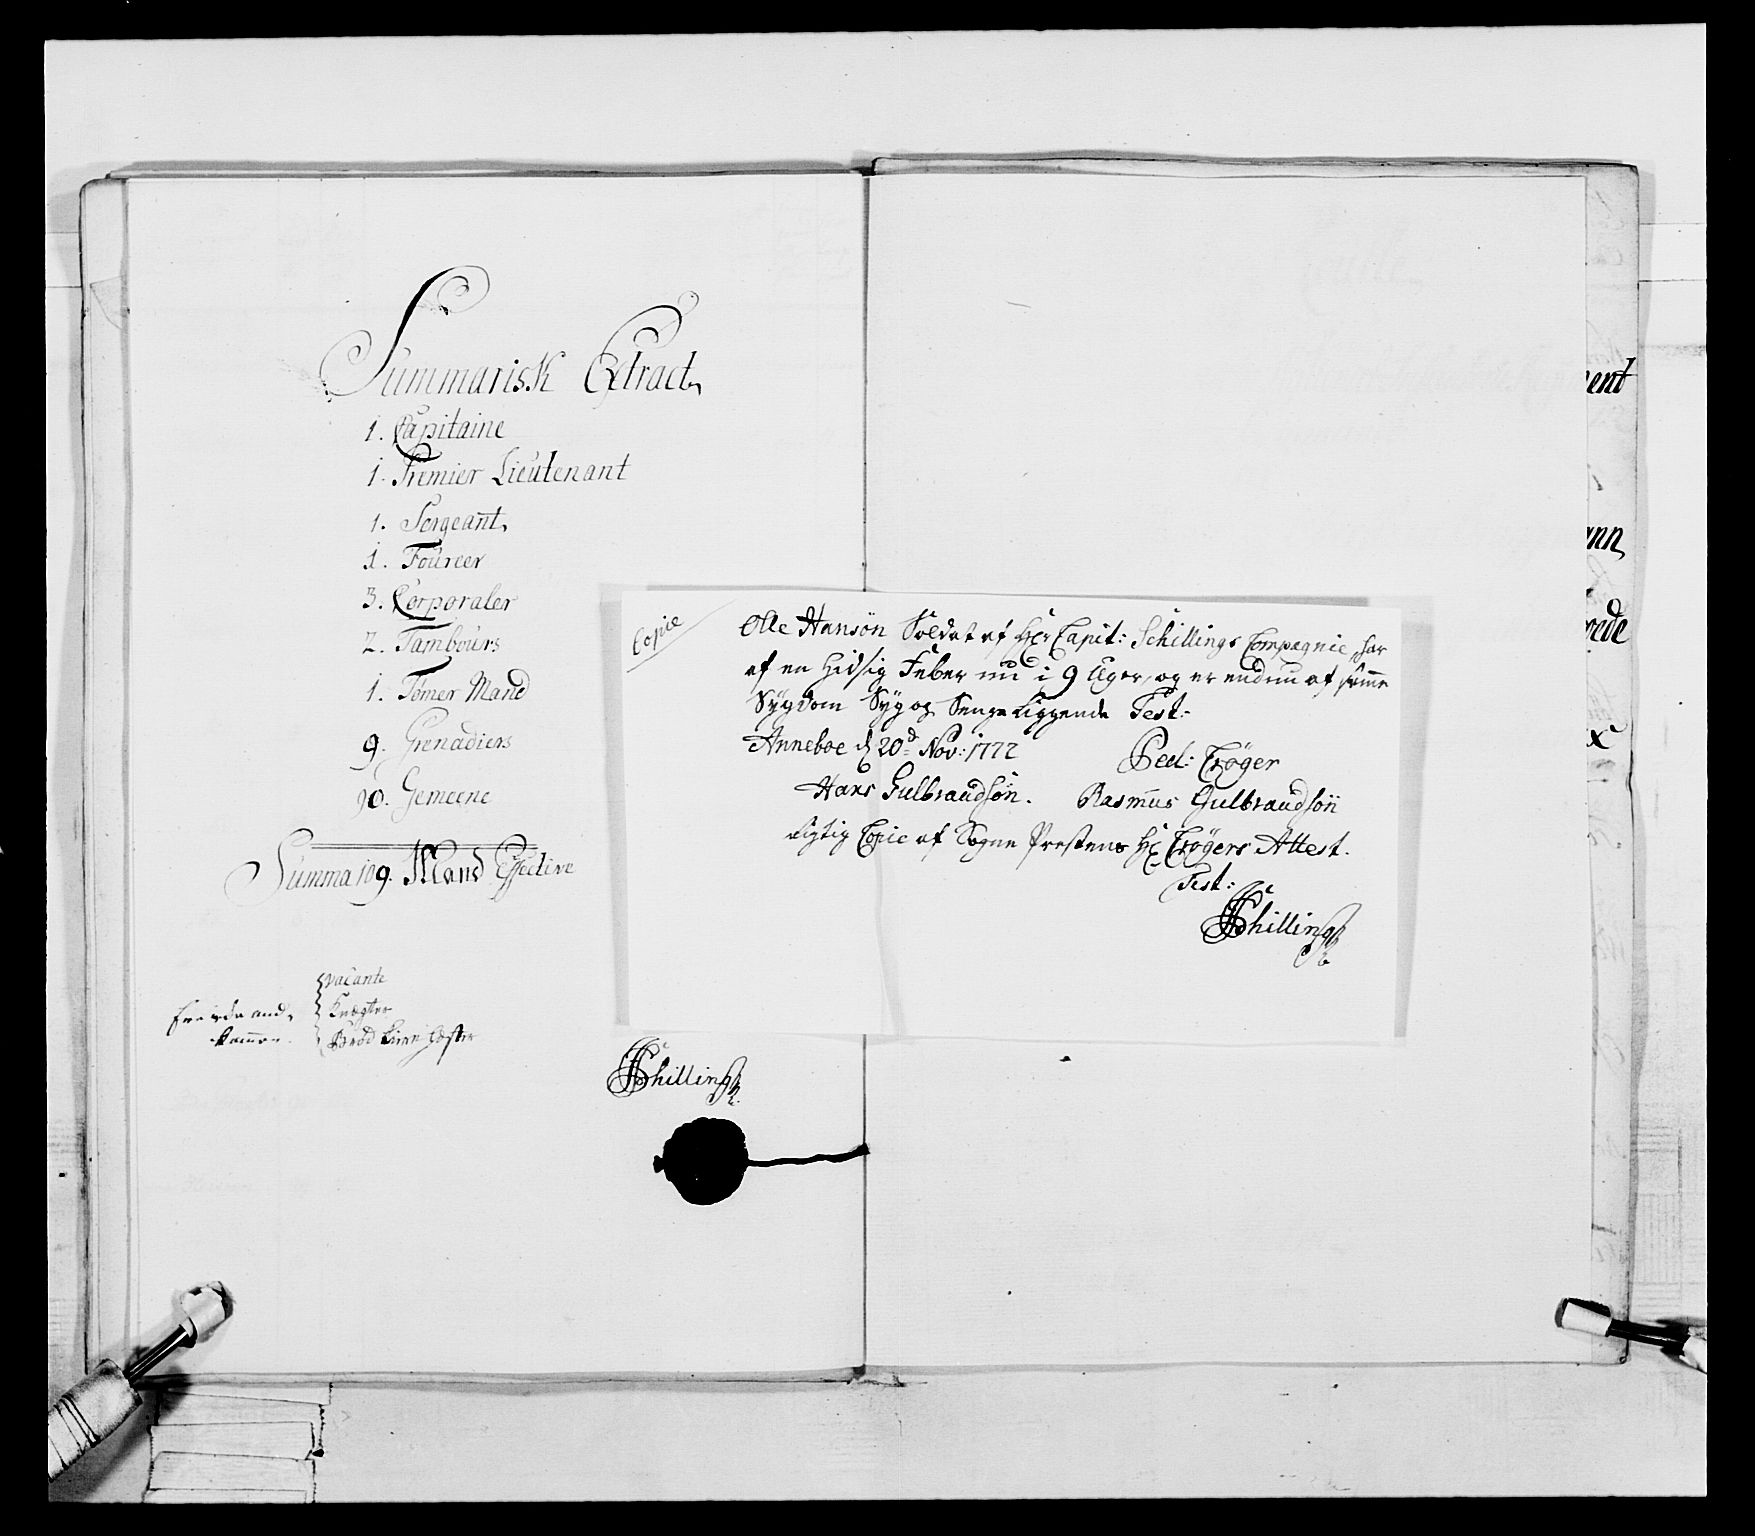 Summarisk Extract,
1. Capitaine
1. Premier Lieutenant
1. Sergeant,
1. Foureer
3. Corporaler
2. Tambours
1. Tømer Mand
9. Grenadiers
90. Gemeene
Summa 109. Mand Effective
vacante
Knægter
Schilling
Copie
Olle Hansön Soldat af Hr Capit: Schillings Compagnie, har
af en Hidsig Feber nu i 9 Uger, og er endnu af samme
Sÿgdom Sÿg og Senge Liggende Test:
Anneboe d 20d Nov: 1772
Ped: Crøger
Hans Gulbrandsøn.
Rasmus Gulbrandsøn
Rigtig Copie af Sogne Prestens Hr Crøgers Attest.
Test:
Schilling
ent
ann
rede
x